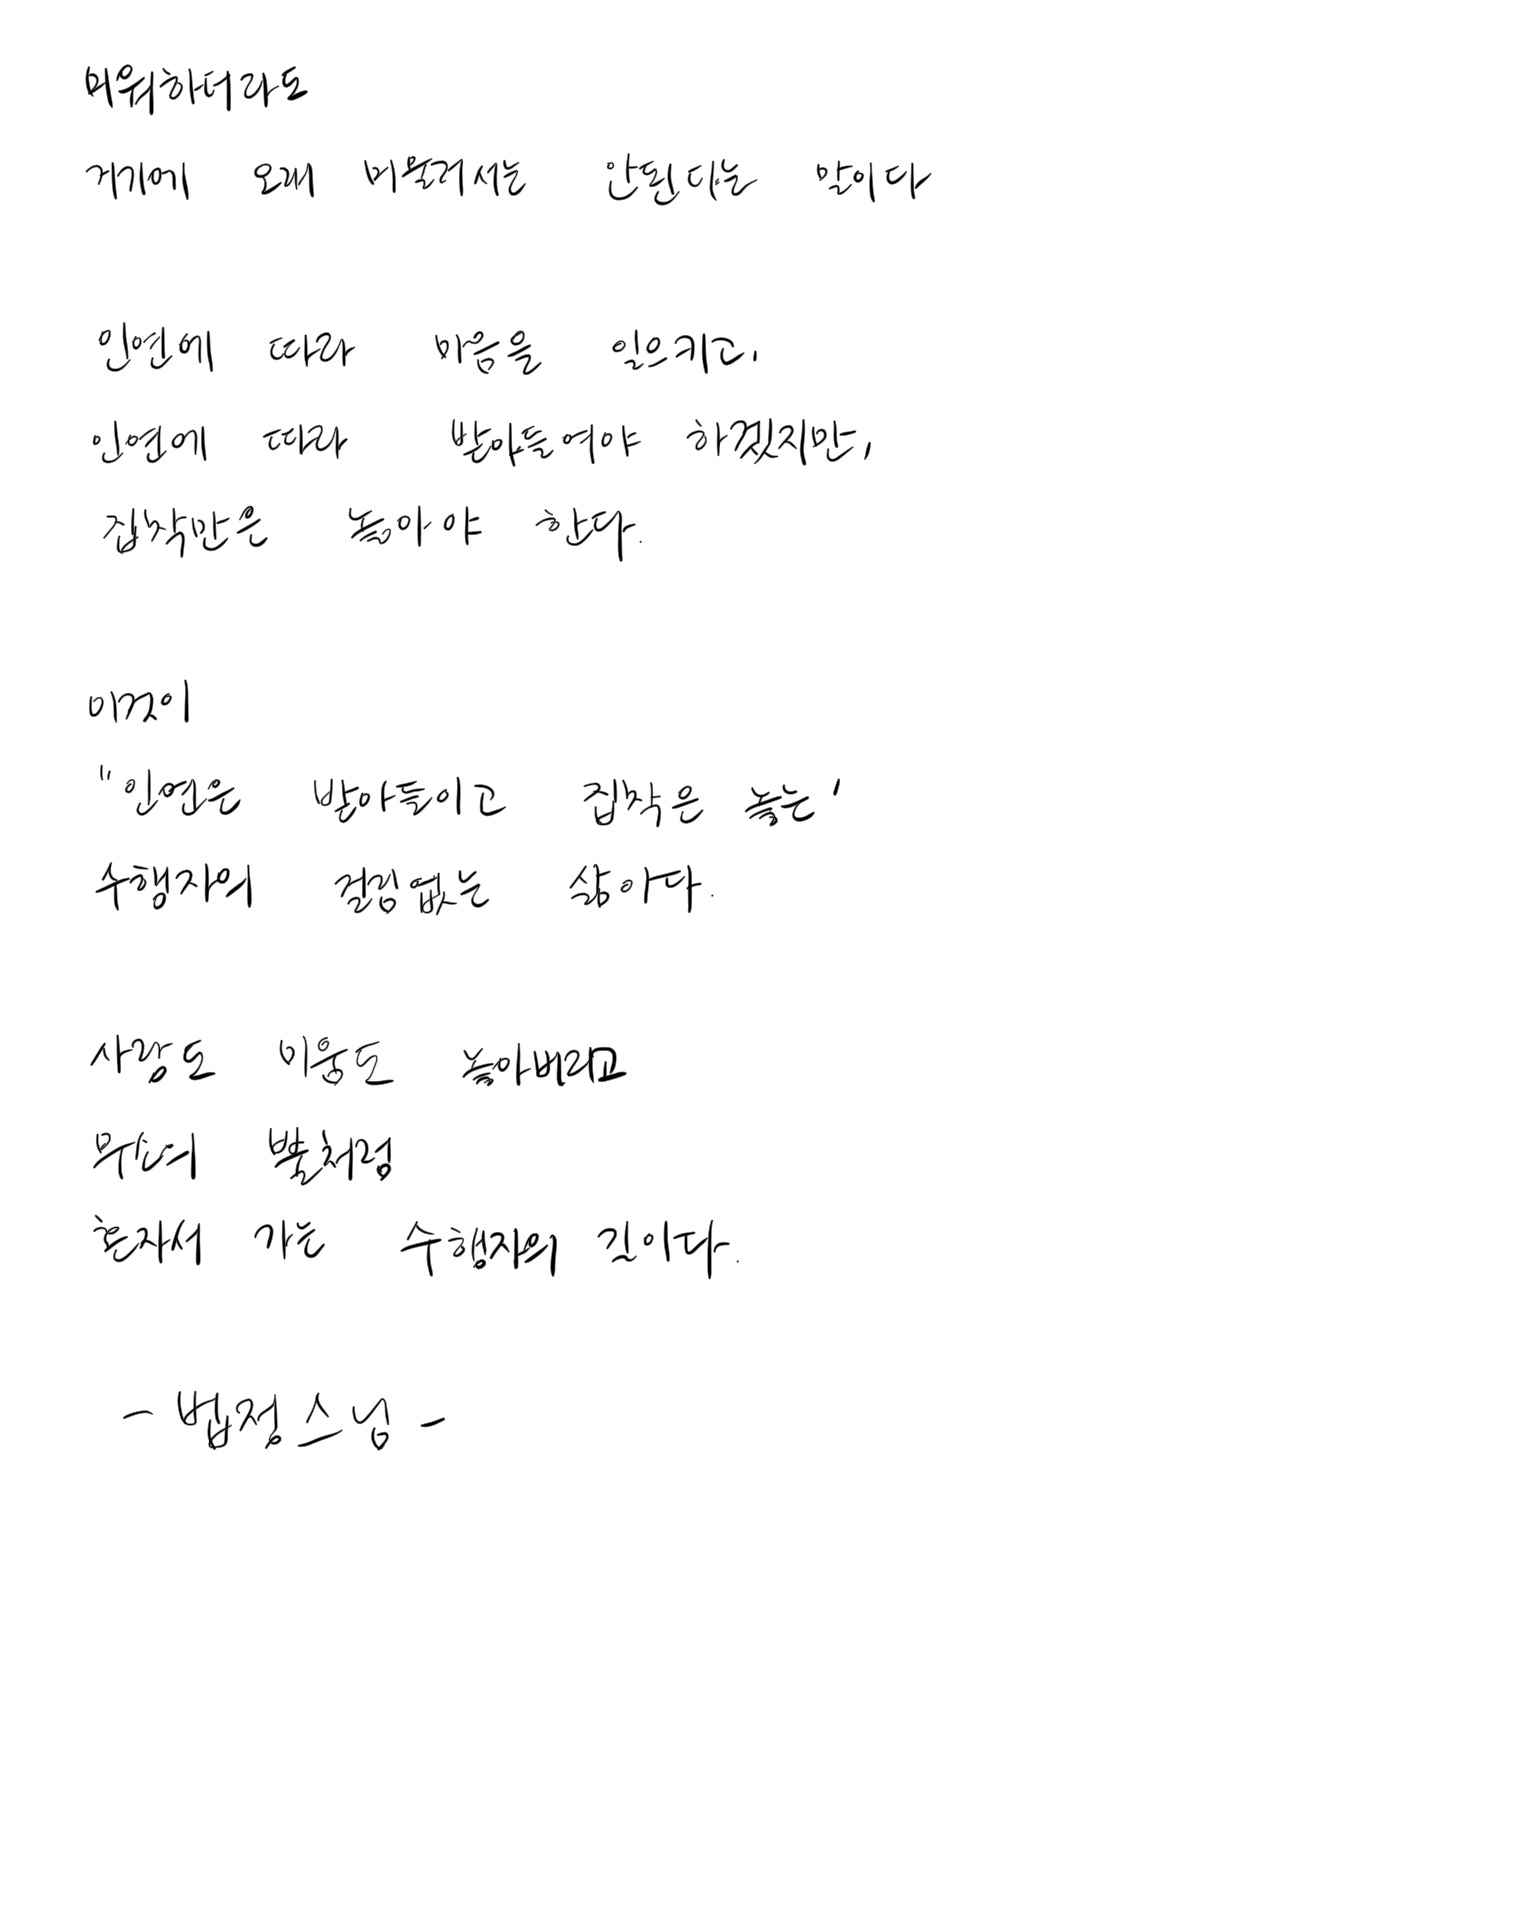 미워하더라도
거기에 오래 머물러서는 안된다는 말이다
인연에 따라 마음을 일으키고,
인연에 따라 받아들여야 하겠지만,
집착만은 놓아야 한다.
이것이
"인연은 받아들이고 집착은 놓는'
수행자의 걸림없는 삶이다.
사랑도 미움도 놓아버리고
불처럼
혼자서 가는 수행자의 길이다.
- 법정스님 -